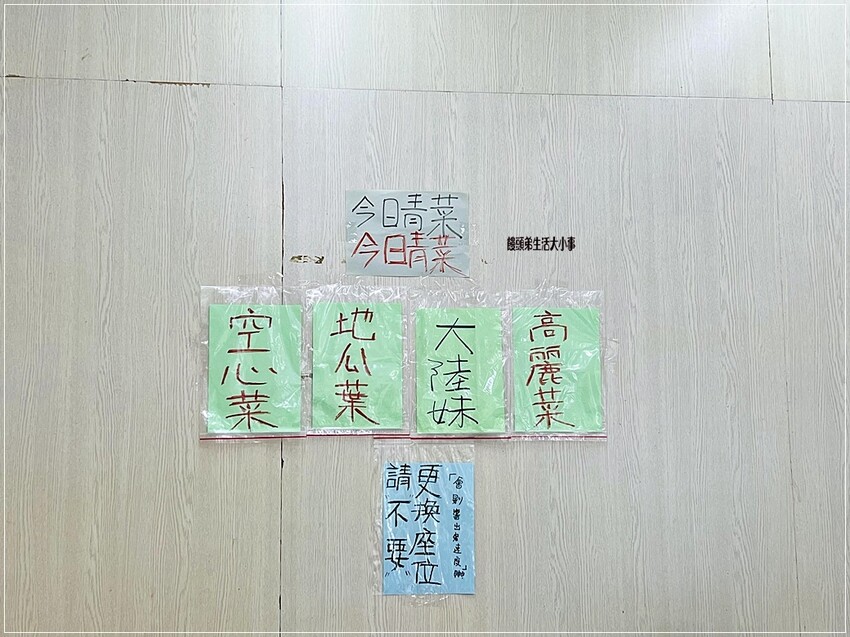 今日青菜
今日青菜
饅頭弟生活大小事
空心菜
地瓜葉
大陸妹
高麗菜
請"不要"
更換座位
「會影響出餐速度」